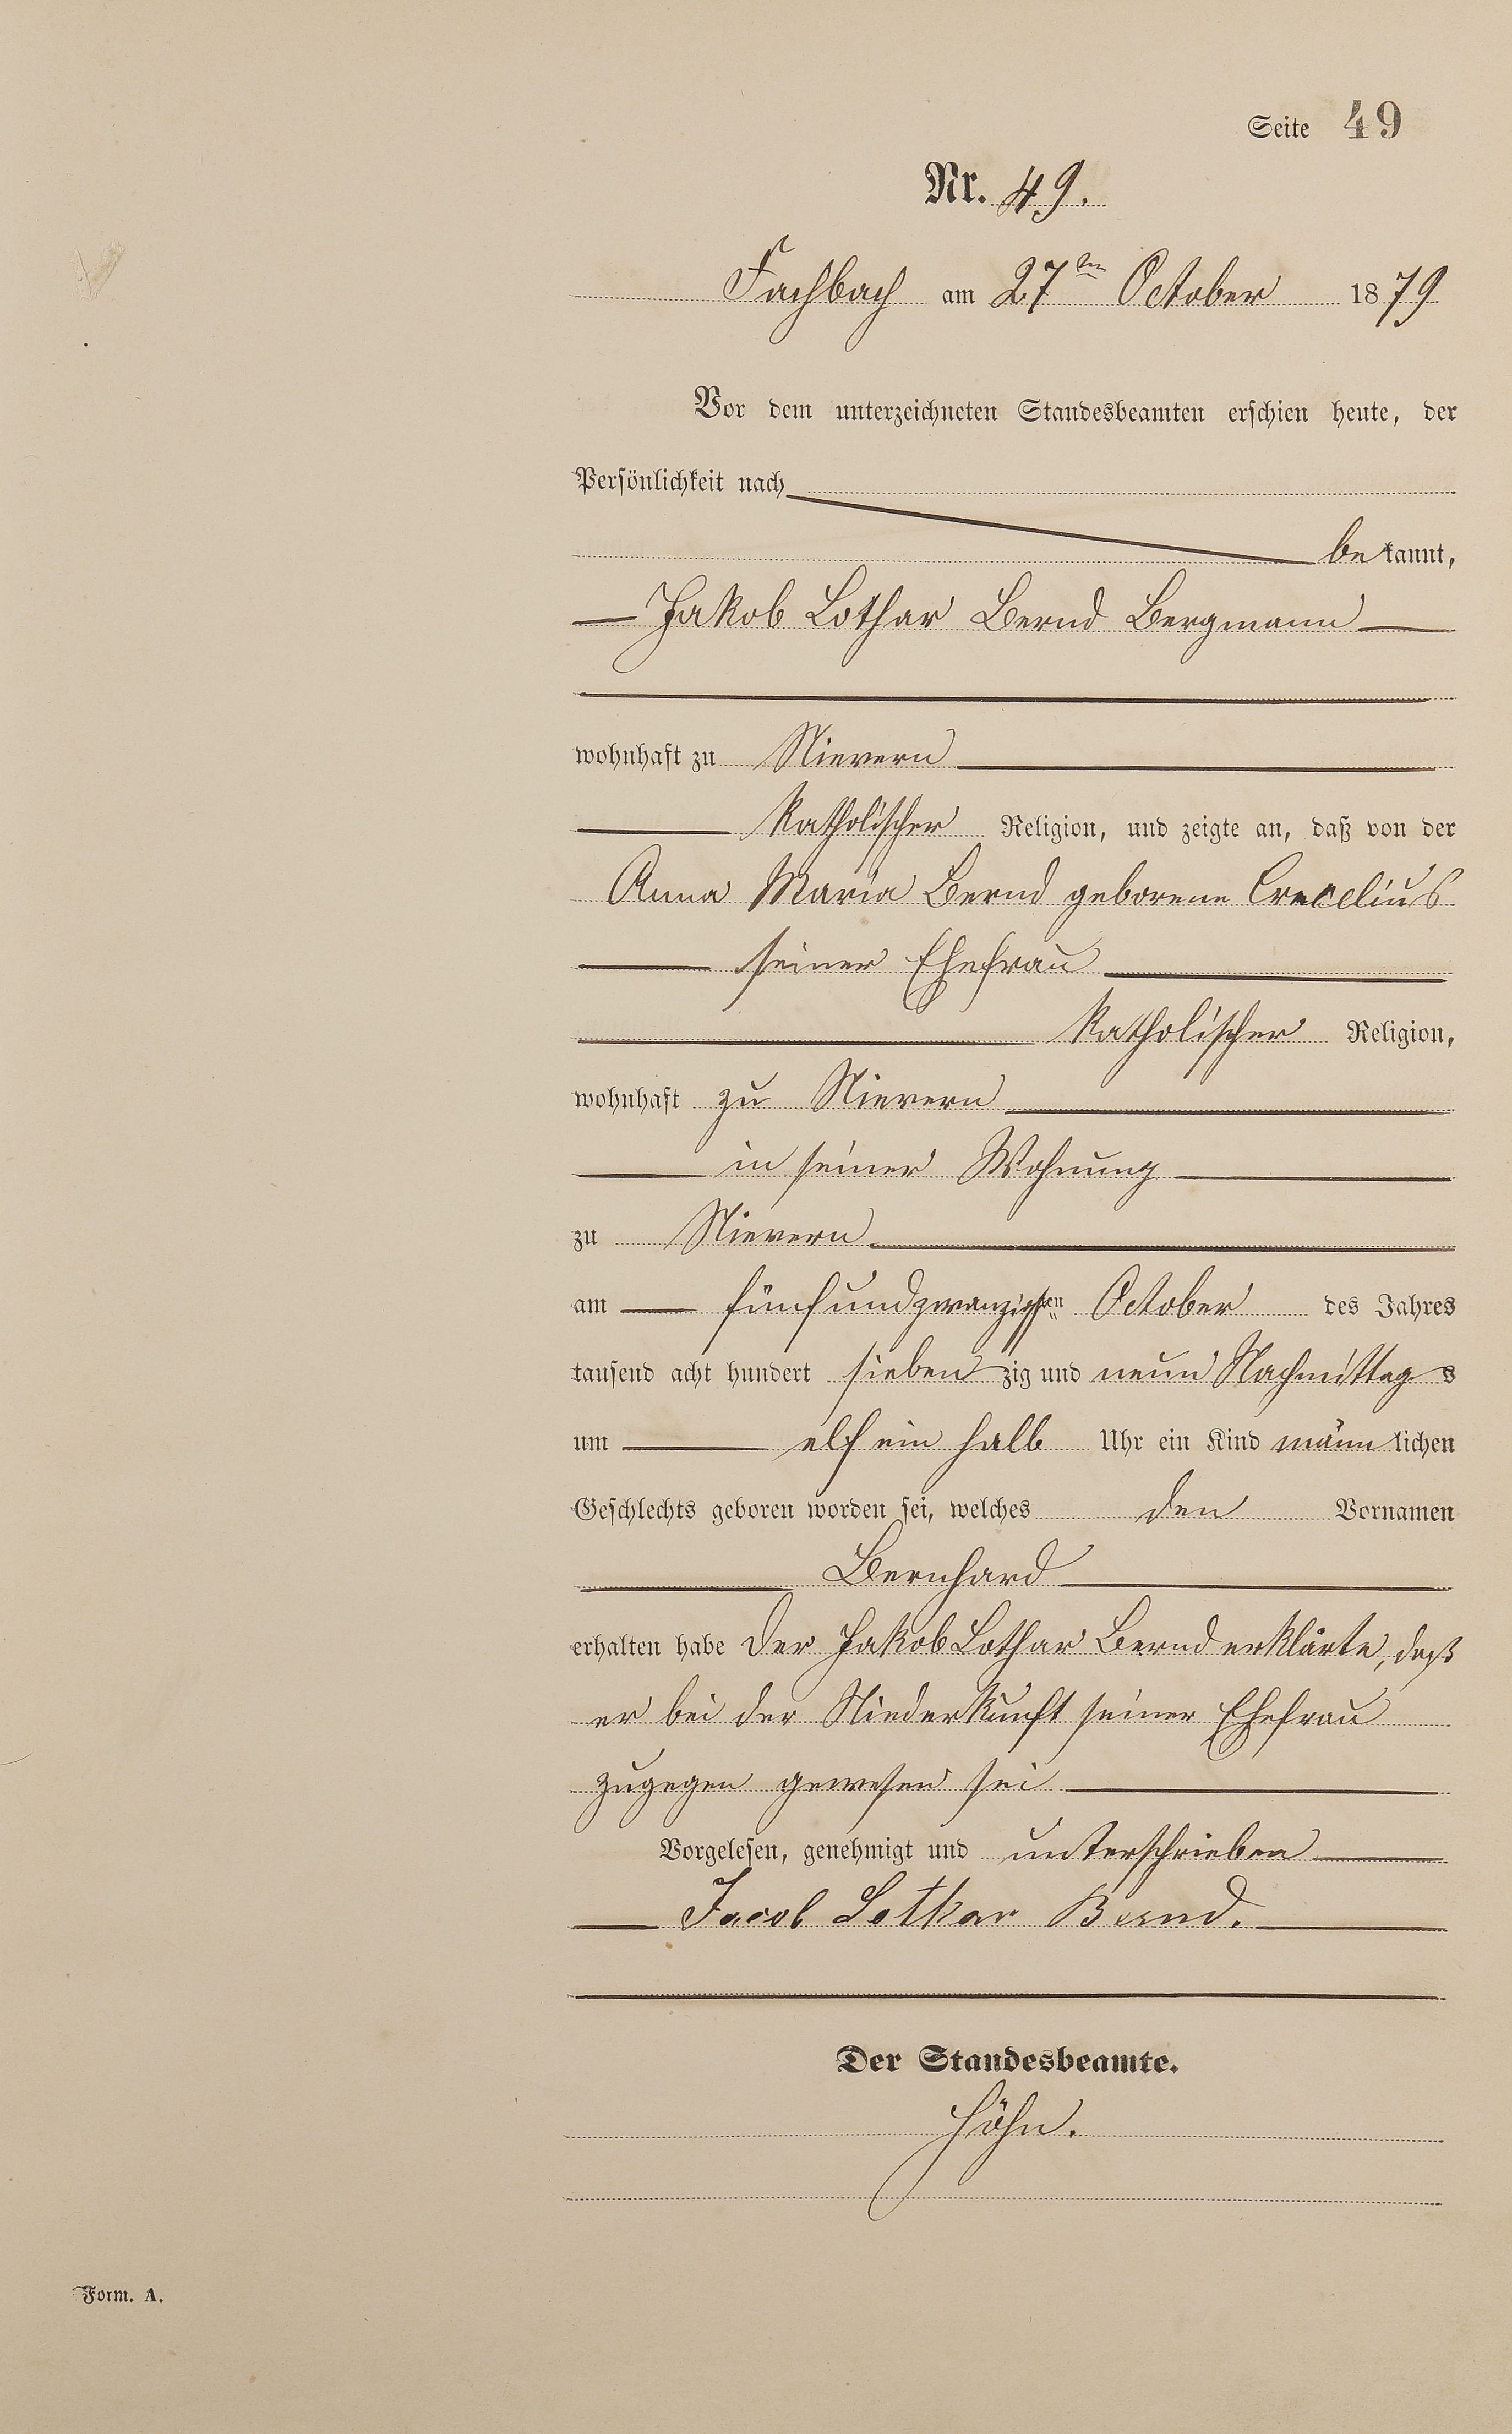 Seite 49
Nr. 49.
Fachbach am 27ten October 1879
Vor dem unterzeichneten Standesbeamten erschien heute, der
Persönlichkeit nach
bekannt,
Jakob Lothar Bernd Bergmann
wohnhaft zu Nievern
katholischer Religion, und zeigte an, daß von der
Anna Maria Bernd geborene Crecelius
seiner Ehefrau
katholischer Religion,
wohnhaft zu Nievern
in seiner Wohnung
zu Nievern
am fünfundzwanzigsten October des Jahres
tausend acht hundert siebenzig und neun Nachmittags
um elf ein halb Uhr ein Kind männlichen
Geschlechts geboren worden sei, welches den Vornamen
Bernhard
erhalten habe der Jakob Lothar Bernd erklärte, daß
er bei der Niederkunft seiner Ehefrau
zugegen gewesen sei
Vorgelesen, genehmigt und unterschrieben
Jacob Lothar Bernd.
Der Standesbeamte.
Höhn.
Form. A.